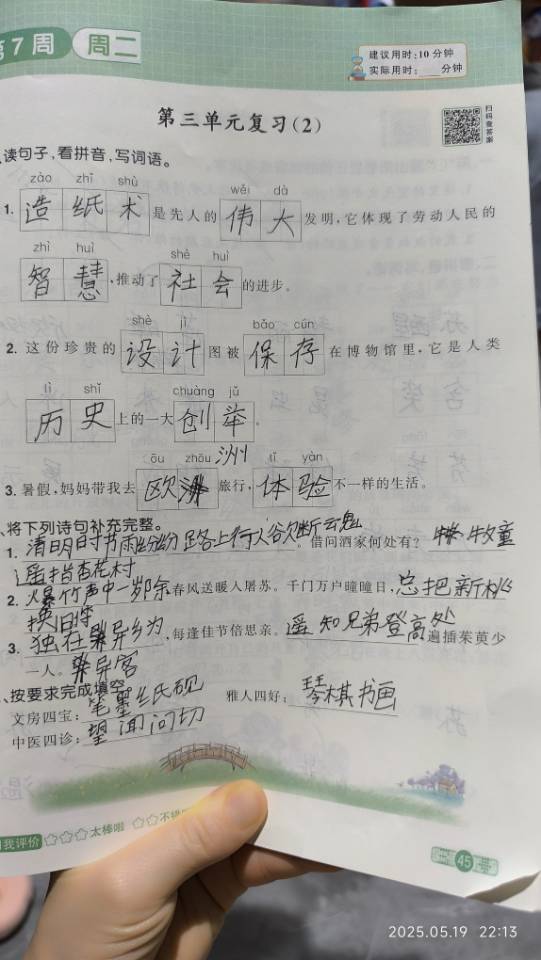 第7周 周二
建议用时:10分钟
实际用时: 分钟
第三单元复习(2)
扫码查答案
读句子,看拼音,写词语。
zào zhǐ shù wěi dà
1. 造纸术是先人的伟大发明,它体现了劳动人民的
zhì huì shè huì
智慧,推动了社会的进步。
shè jì bǎo cún
2. 这份珍贵的设计图被保存在博物馆里,它是人类
lì shǐ chuàng jǔ
历史上的一大创举。
洲
ōu zhōu tǐ yàn
3. 暑假,妈妈带我去欧旅行,体验不一样的生活。
、将下列诗句补充完整。
1. 清明时节雨纷纷 路上行人欲断云鬼。借问酒家何处有?牧童
遥指杏花村
2. 爆竹声中一岁除春风送暖入屠苏。千门万户曈曈日,总把新桃
换旧符
3. 独在异乡为,每逢佳节倍思亲。遥知兄弟登高处遍插茱萸少
一人。异客
、按要求完成填空
文房四宝:笔墨纸砚 雅人四好:琴棋书画
中医四诊:望闻问切
自我评价 ☆☆☆太棒啦 ☆☆不错
45
2025.05.19 22:13